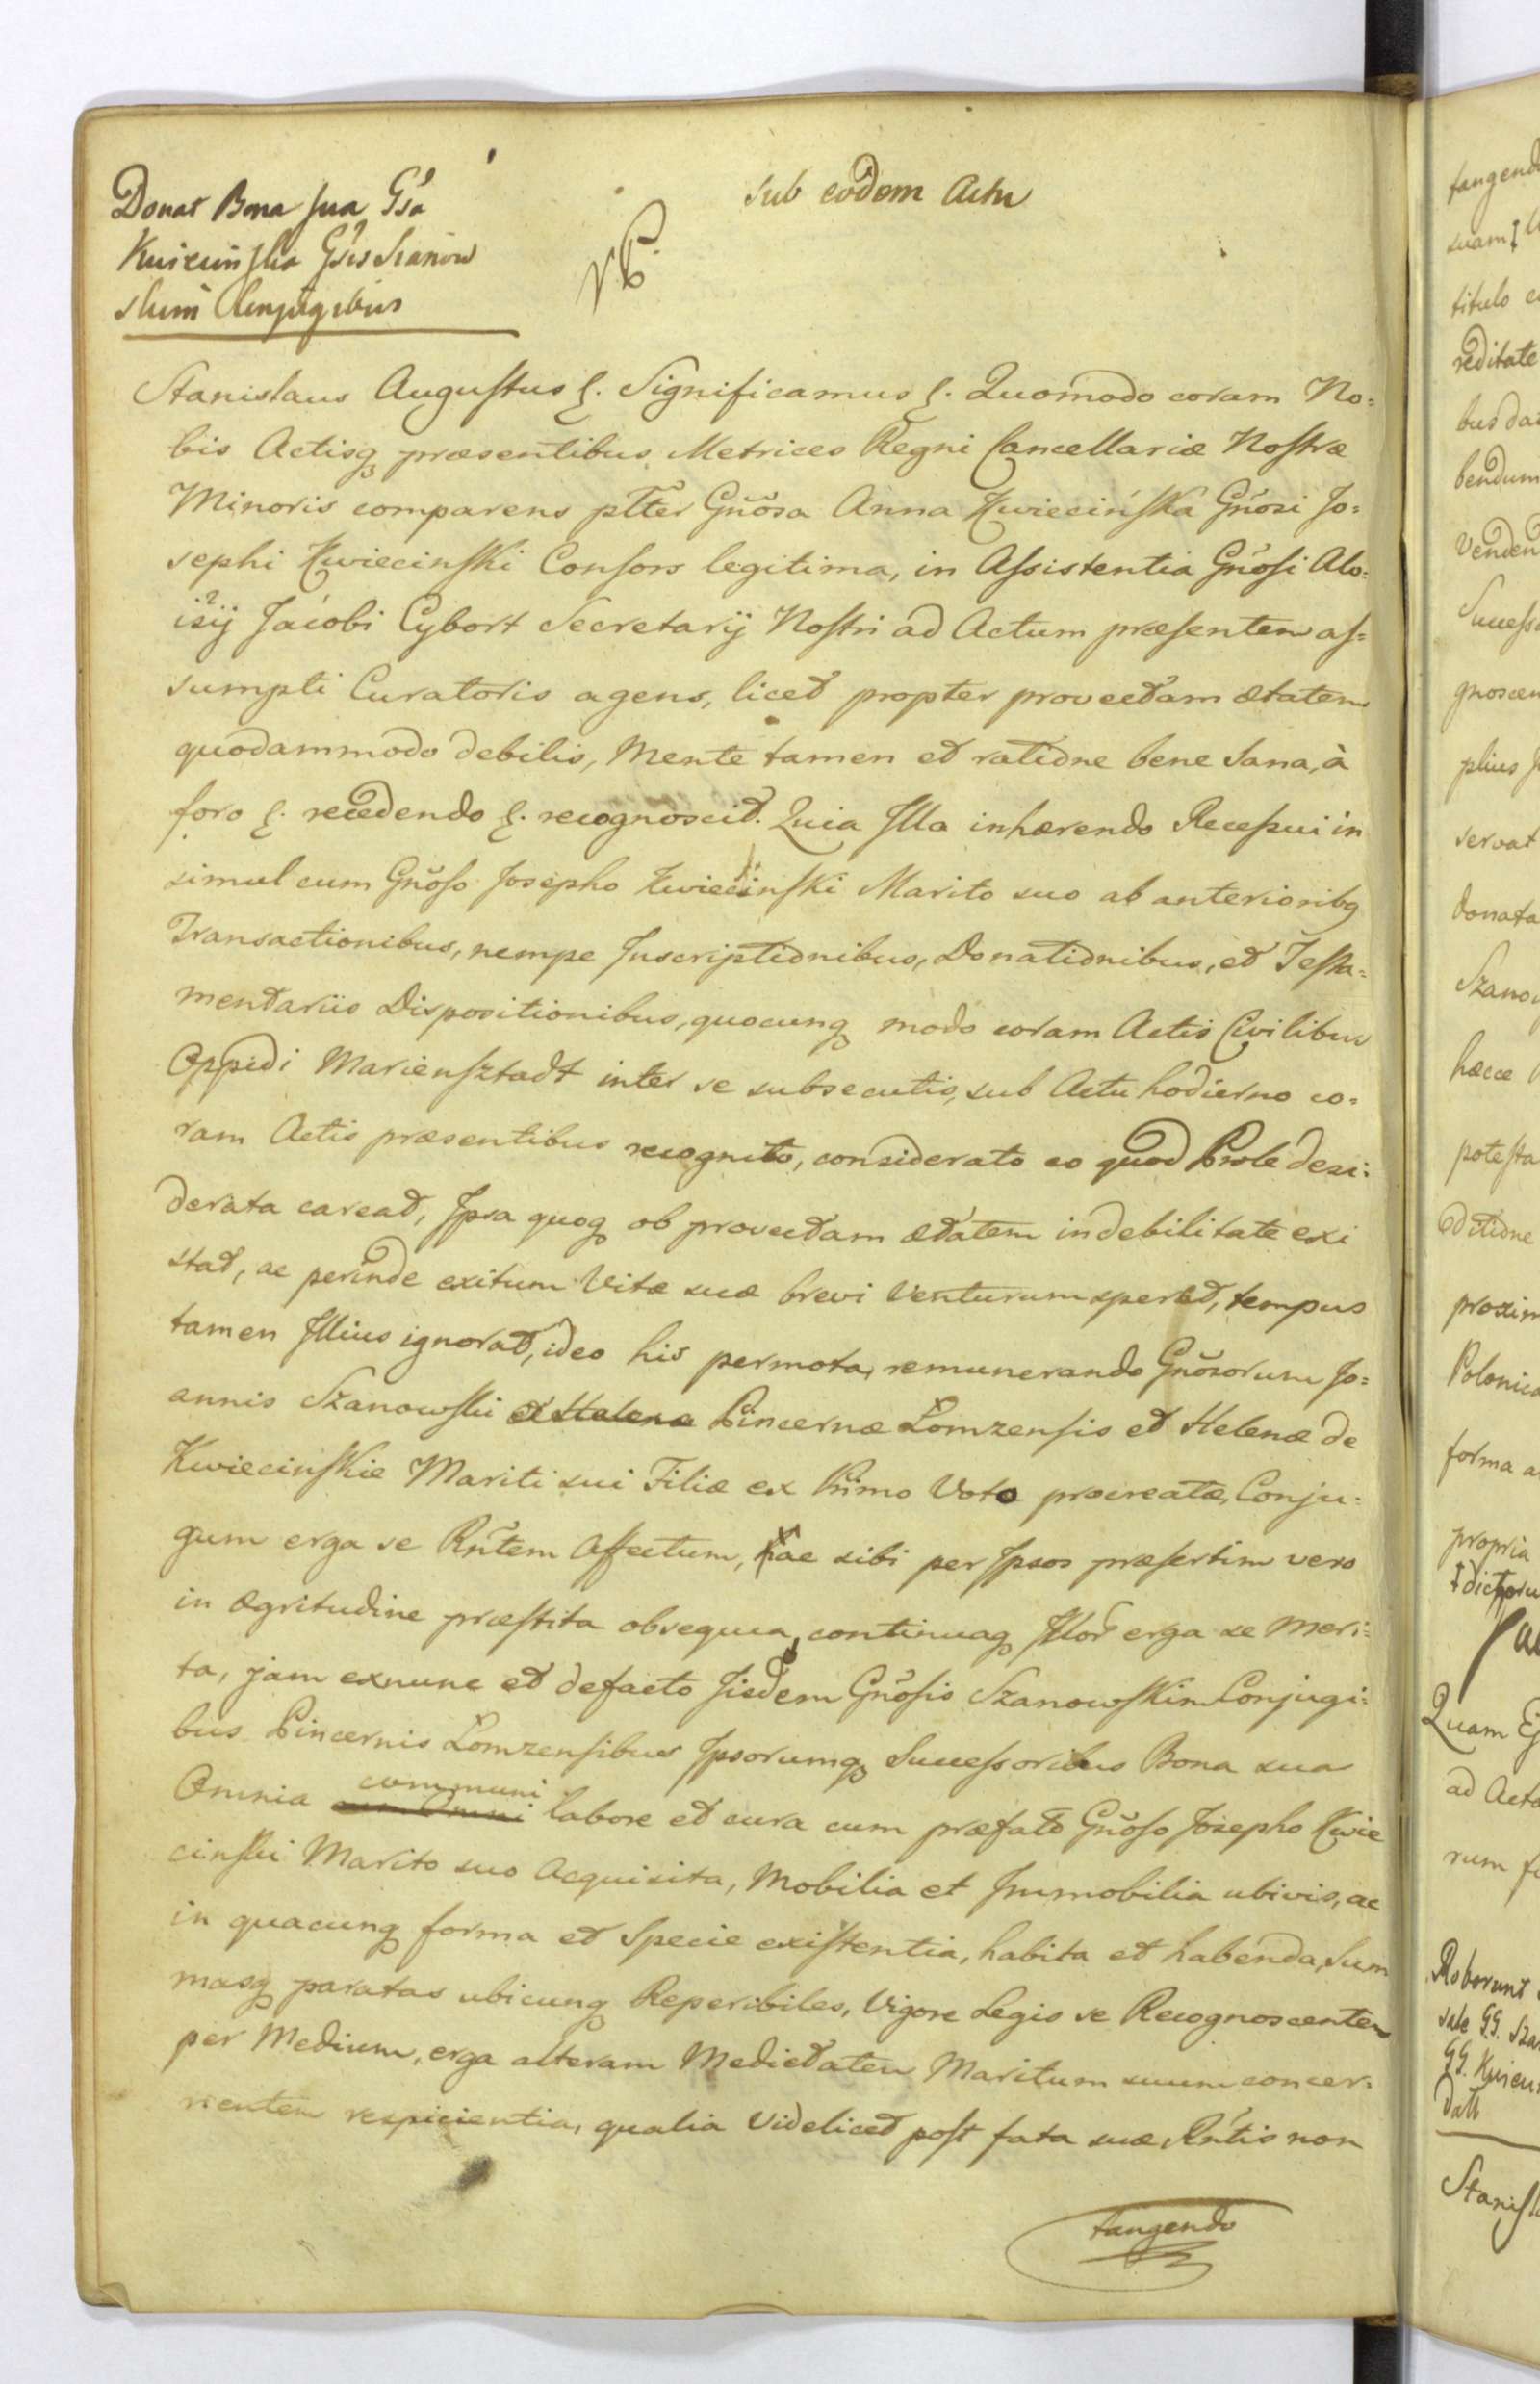 Donat Bona sua Gsa
Kwiecinska Gsis Szanow
skim Conjugibus
Sub eodem Actu
Stanislaus Augustus &. Significamus &. Quomodo coram No=
bis Actisq præsentibus Metrices Regni Cancellariæ Nostræ
Minoris comparens pltter Gnosa Anna Kwiecińska Gnosi Jo=
sephi Kwiecinski Consors legitima, in Assistentia Gnosi Alo=
isij Jacobi Cybort Secretarij Nostri ad Actum præsentem as=
sumpti Curatoris agens, licet propter provectam ætatem
quodammodo debilis, Mente tamen et ratione bene Sana, à
foro &. recedendo &. recognoscit. Quia Illa inhærendo Recessui in
simul cum Gnoso Josepho Kwiecinski Marito suo ab anterioribq
Transactionibus, nempe Inscriptionibus, Donationibus, et Testa=
mentariis Dispositionibus, quocunq modo coram Actis Civilibus
Oppidi Mariensztadt inter se subsecutis, sub Actu hodierno co=
ram Actis præsentibus recognito, considerato eo quod Prole desi=
derata careat, Ipsa quoq ob provectam ætatem in debilitate exi
stat, ac perinde exitum Vitæ suæ brevi Venturum speret, tempus
tamen Illius ignorat, ideo his permota, remunerando Gnosorum Jo=
annis Szanowski et Helena Pincernæ Lomzensis et Helenæ de
Kwiecinskie Mariti sui Filiæ ex Primo Voto procreatæ, Conju=
gum erga se Rntem Affectum, ac sibi per Ipsos præsertim vero
in ægritudine præstita obsequia, continuaq Illor erga se meri=
ta, jam exnunc et defacto Iisdem Gnosis Szanowskim Conjugi=
bus Pincernis Lomzensibus Ipsorumq Successoribus Bona sua
Omnia communi labore et cura cum præfato Gnoso Josepho Kwie
cinski Marito suo Acquisita, Mobilia et Immobilia ubivis, ac
in quacunq forma et Specie existentia, habita et habenda, Sum
masq paratas ubicunq Reperibiles, Vigore Legis se Recognoscentem
per Medium, erga alteram Medietatem Maritum suum concer=
nentem respicientia, qualia videlicet post fata suæ Rntis non
tangendo
tangendo
suam
titulo
reditate
bus
bendum
Venden
Success
gnoscen
plius
servat
donata
Szanow
hæcce
potesta
ditione
proxim
Polonica
forma a
propria
Quam Ej
ad Acta
rum
Roborant
sale GG. Sza
GG. Kwieci
Datt
Stanisl